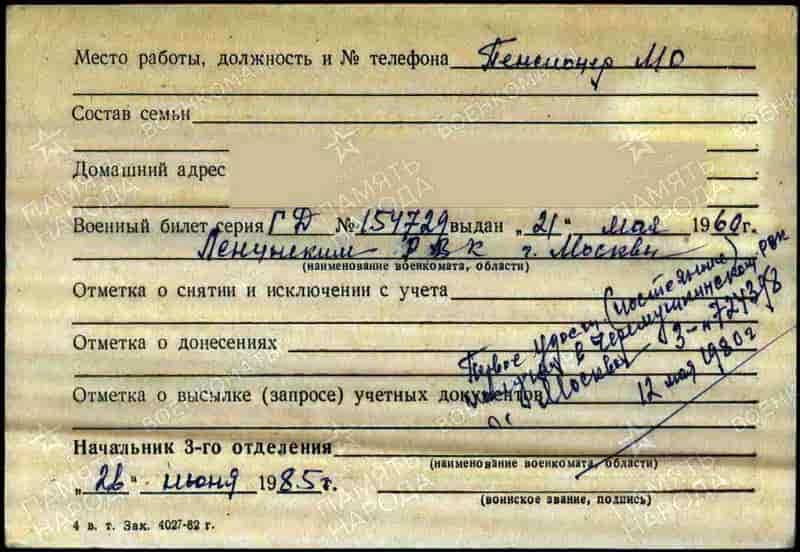 Место работы, должность и № телефона Пенсионер МО
Состав семьи
Домашний адрес
Военный билет серия ГД № 154729 выдан „21“ мая 1960 г.
Ленинским РВК г. Москвы
(наименование военкомата, области)
Отметка о снятии и исключении с учета
Отметка о донесениях
Отметка о высылке (запросе) учетных документов
Первое удост. (постоянное)
в Черемушкинском РВК
г. Москвы 3-н 724398
12 мая 1980 г
Начальник 3-го отделения
(наименование военкомата, области)
„26“ июня 1985 г.
(воинское звание, подпись)
4 в. т. Зак. 4027-82 г.
ПАМЯТЬ НАРОДА
ВОЕНКОМАТ